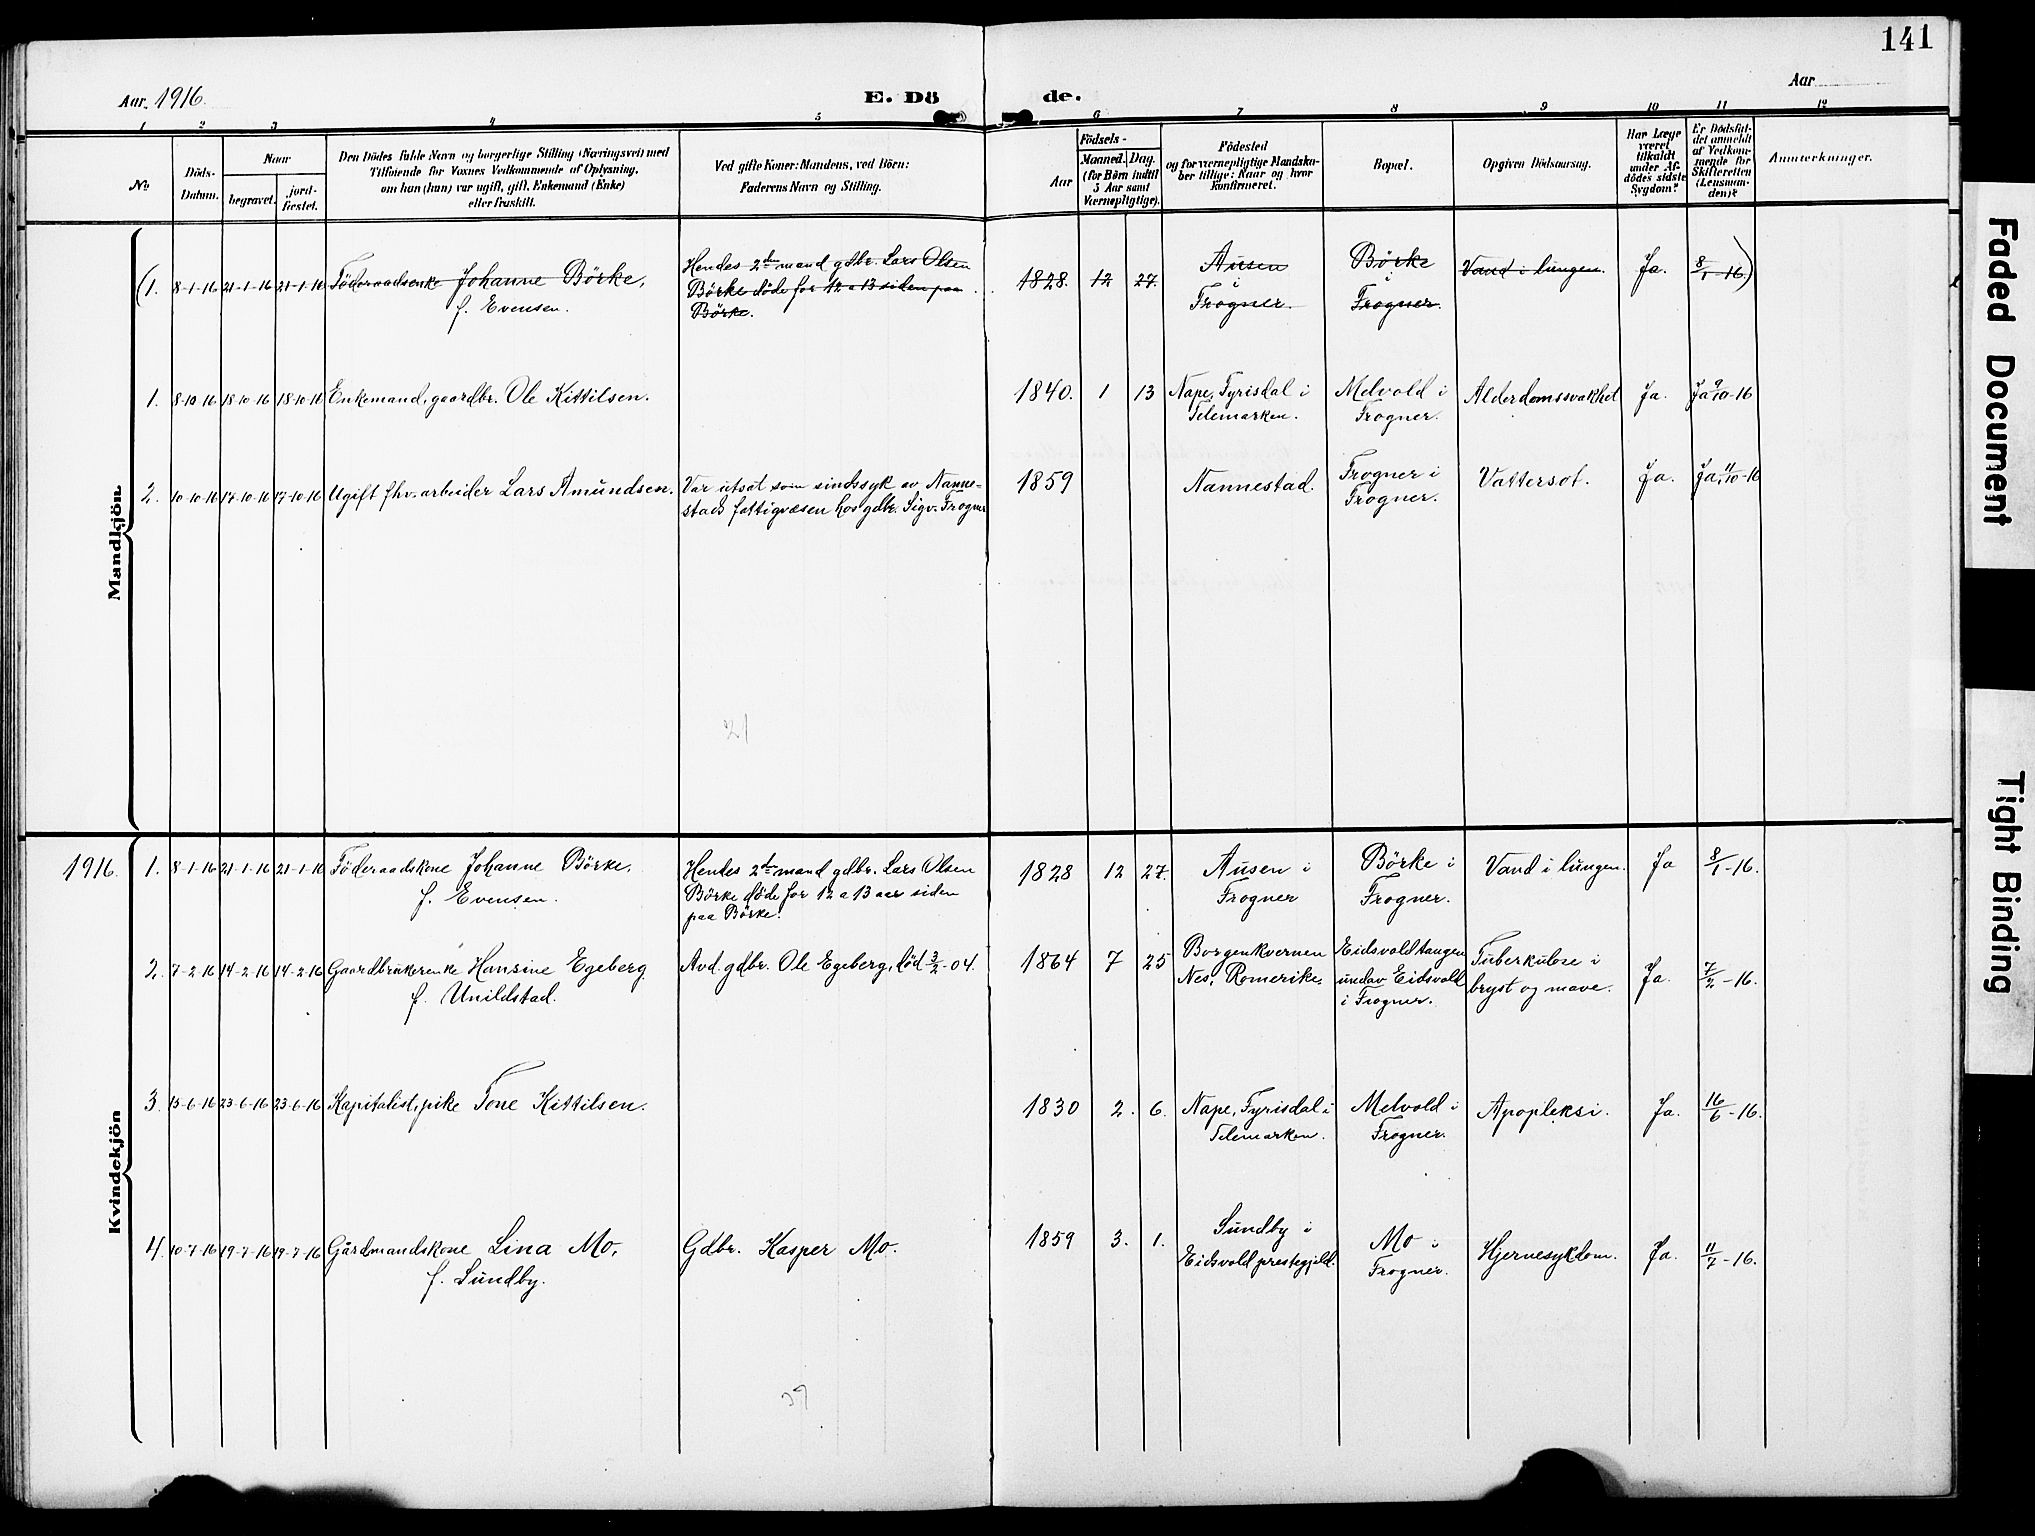 141
Aar 1916.
E. Dö de.
Aar
1 2 3 4 5 6 7 8 9 10 11 12
No
Döds-
Datum.
Naar
begravet.
jord-
fæstet.
Den Dödes fulde Navn og borgerlige Stilling (Næringsvei) med
Tilföiende for Voxnes Vedkommende af Oplysning,
om han (hun) var ugift, gift, Enkemand (Enke)
eller fraskilt.
Ved gifte Koner: Mandens, ved Börn:
Faderens Navn og Stilling.
Födsels-
Aar
Maaned. Dag.
(for Börn indtil
5 Aar samt
Værnepligtige).
Födested
og for værnepligtige Mandska-
ber tillige: Naar og hvor
konfirmeret.
Bopæl.
Opgiven Dödsaarsag.
Har Læge
været
tilkaldt
under Af-
dödes sidste
Sygdom?
Er Dödsfal-
det anmeldt
af Vedkom-
mende for
Skifteretten
(Lensman-
den)?
Anmerkninger.
Mandkjön
(1. 8-1-16 21-1-16 21-1-16 Föderaadsenke Johanne Börke, f. Evensen.
Hendes 2den mand gdbr. Lars Olsen
Börke döde for 12 a 13 siden paa
Börke.
1828. 12 27. Ausen i Frogner. Börke i Frogner. Vand i lungen. Ja. 8/1-16)
1. 8-10-16 18-10-16 18-10-16 Enkemand, gaardbr. Ole Kittilsen.
1840. 1 13 Nape, Fyrisdal i Telemarken. Melvold i Frogner. Alderdomssvakhet Ja. Ja 9/10-16
2. 10-10-16 17-10-16 17-10-16 Ugift fhv. arbeider Lars Amundsen.
Var utsat som sindssyk av Nanne-
stads fattigvæsen hos gdbr. Sigv. Frogner
1859 Nannestad. Frogner i Frogner. Vattersot. Ja. Ja, 11/10-16
21
Kvindekjön
1916. 1. 8-1-16 21-1-16 21-1-16 Föderaadskone Johanne Börke, f. Evensen.
Hendes 2den mand gdbr. Lars Olsen
Börke döde for 12 a 13 aar siden
paa Börke.
1828 12 27. Ausen i Frogner Börke i Frogner. Vand i lungen. Ja 8/1-16.
2. 7-2-16 14-2-16 14-2-16 Gaardbrukerenke Hansine Egeberg f. Unildstad.
Avd. gdbr. Ole Egeberg, död 3/2-04.
1864 7 25 Borgenkvernen Nes, Romerike. Eidsvoldtangen undav Eidsvold i Frogner. Tuberkulose i bryst og mave. Ja. 7/2-16.
3. 15-6-16 23-6-16 23-6-16 Kapitalist, pike Tone Kittilsen.
1830 2. 6. Nape, Fyrisdal i Telemarken. Melvold i Frogner. Apopleksi. Ja. 16/6-16.
4. 10-7-16 19-7-16 19-7-16 Gårdmandskone Lina Mo, f. Sundby.
Gdbr. Kasper Mo.
1859 3. 1. Sundby i Eidsvold prestegjeld. Mo i Frogner. Hjernesykdom. Ja. 11/7-16.
Faded Document
Tight Binding